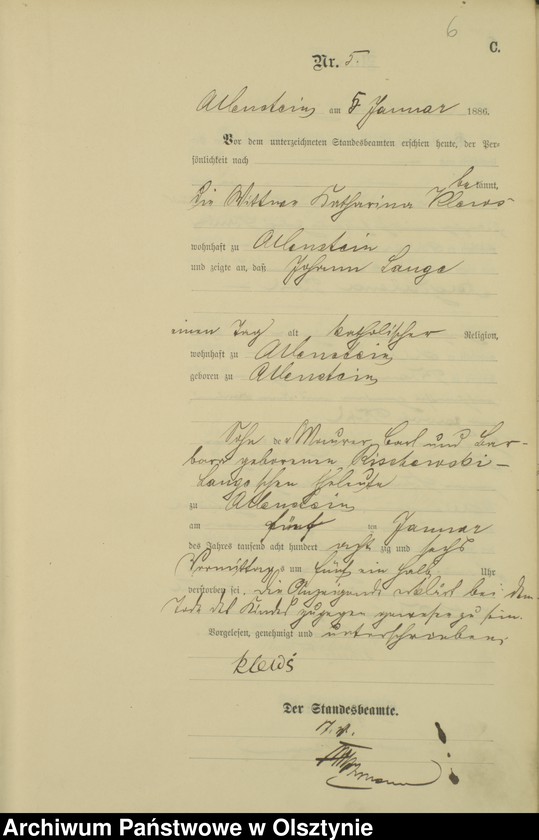 6
C.
Nr. 5.
Allenstein am 5 Januar 1886.
Vor dem unterzeichneten Standesbeamten erschien heute, der Per=
sönlichkeit nach
bekannt,
Die Wittwe Katharina Klews
wohnhaft zu Allenstein
und zeigte an, daß Johann Lange
einen Tag alt katholischer Religion,
wohnhaft zu Allenstein
geboren zu Allenstein
Sohn der Maurer Carl und Bar-
bara geborenen Rischewski-
Lange'schen Eheleute
zu Allenstein
am fünf ten Januar
des Jahres tausend acht hundert acht zig und sechs
Vormittags um fünf ein halb Uhr
verstorben sei. Die Anzeigende erklärt bei dem
Tode des Kindes zugegen gewesen zu sein.
Vorgelesen, genehmigt und unterschrieben
Klews
Der Standesbeamte.
Archiwum Państwowe w Olsztynie